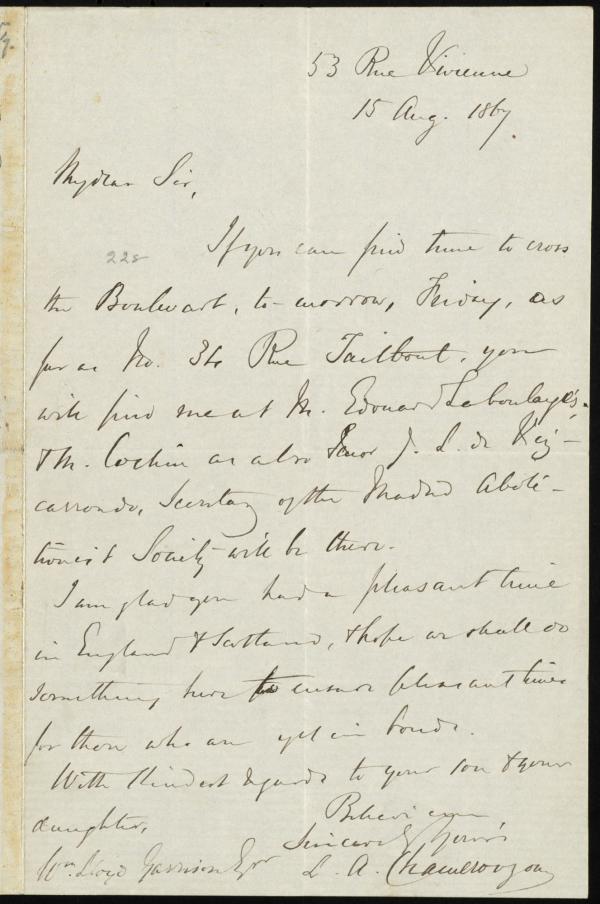 53 Rue Vivienne
15 Aug. 1867.
My dear Sir,
228
If you can find time to cross
the Boulevart, to-morrow, Friday, as
far as No. 34 Rue Taitbout, you
will find me at M. Edouard Laboulaye's.
& M. Cochin as also Senor J. L. de Viz-
carrondo, Secretary of the Madrid Aboli-
tionist Society will be there.
I am glad you had a pleasant time
in England & Scotland, & hope we shall do
something here to ensure pleasant times
for those who are yet in bonds.
With kindest regards to your son & your
daughter,
Believe me,
Sincerely yours
Wm. Lloyd Garrison Esqr
L. A. Chamerovzow